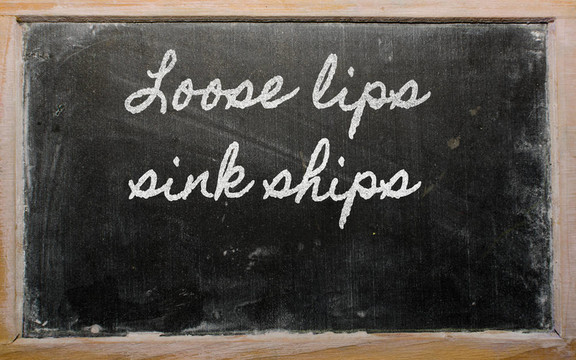 Loose lips
sink ships